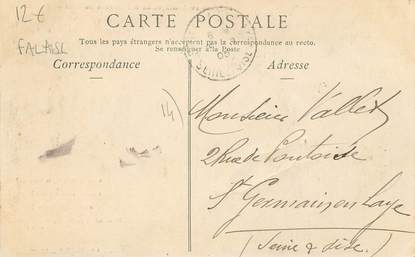 12€
FALAISE
CARTE POSTALE
Tous les pays étrangers n'acceptent pas la correspondance au recto.
Se renseigner à la Poste
Correspondance
Adresse
14)
Monsieur Vallet
2 Rue de Pontoise
St Germain en Laye
(Seine & Oise.)